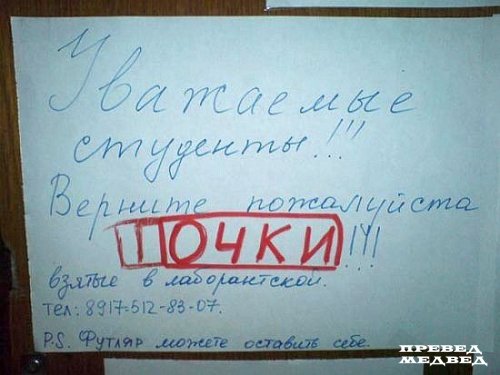 Уважаемые
студенты!!!
Верните пожалуйста
ПОЧКИ!!!
взятые в лаборантской.
тел: 8917-512-83-07.
P.S. Футляр можете оставить себе.
ПРЕВЕД
МЕДВЕД